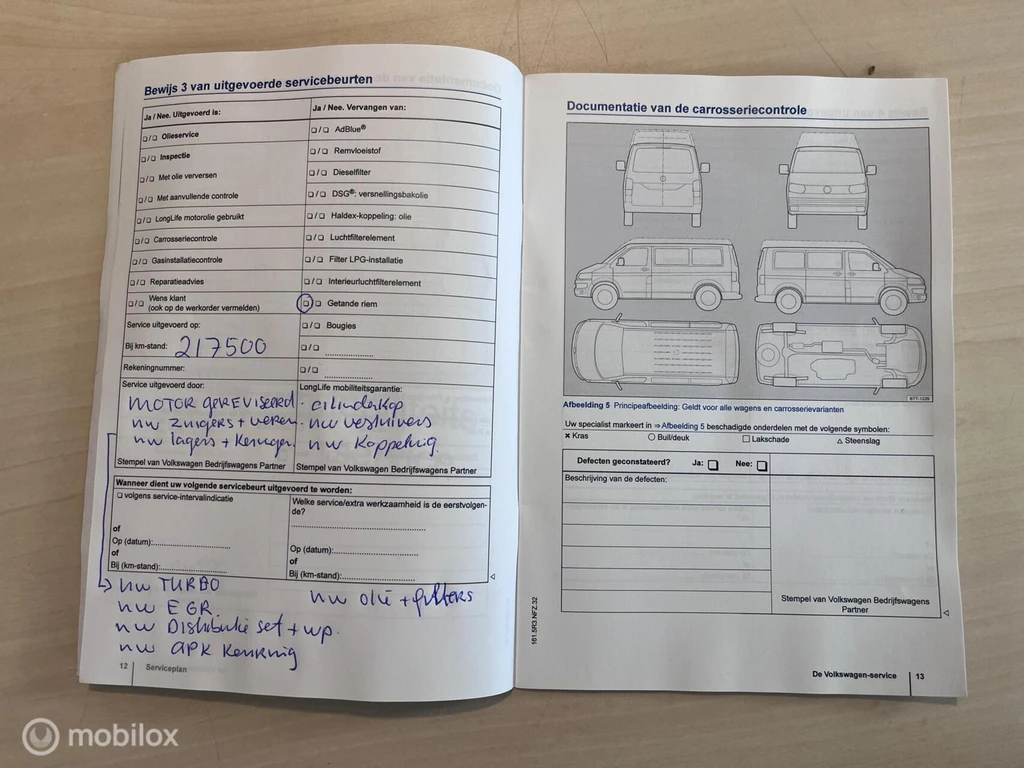 Bewijs 3 van uitgevoerde servicebeurten
Ja / Nee. Uitgevoerd is:
Ja / Nee. Vervangen van:
❏/❏ Olieservice
❏/❏ AdBlue®
❏/❏ Inspectie
❏/❏ Remvloeistof
❏/❏ Met olie verversen
❏/❏ Dieselfilter
❏/❏ Met aanvullende controle
❏/❏ DSG®: versnellingsbakolie
❏/❏ LongLife motorolie gebruikt
❏/❏ Haldex-koppeling: olie
❏/❏ Carrosseriecontrole
❏/❏ Luchtfilterelement
❏/❏ Gasinstallatiecontrole
❏/❏ Filter LPG-installatie
❏/❏ Reparatieadvies
❏/❏ Interieurluchtfilterelement
❏/❏ Wens klant
(ook op de werkorder vermelden)
❏/❏ Getande riem
Service uitgevoerd op:
❏/❏ Bougies
Bij km-stand: 217500
❏/❏
Rekeningnummer:
❏/❏
Service uitgevoerd door:
LongLife mobiliteitsgarantie:
MOTOR GEREVISEERD. cilinderkop
nw zuigers + veren. nw verstuivers
nw lagers + nw Koppeling.
Stempel van Volkswagen Bedrijfswagens Partner
Stempel van Volkswagen Bedrijfswagens Partner
Wanneer dient uw volgende servicebeurt uitgevoerd te worden:
❏ volgens service-intervalindicatie
Welke service/extra werkzaamheid is de eerstvolgen-
de?
of
Op (datum):
of
Bij (km-stand):
Op (datum):
of
Bij (km-stand):
nw TURBO
nw olie + filters
nw EGR.
nw Distributie set + wp.
nw APK Keuring
12 Serviceplan
Documentatie van de carrosseriecontrole
B7T-1226
Afbeelding 5 Principeafbeelding: Geldt voor alle wagens en carrosserievarianten
Uw specialist markeert in ⇒Afbeelding 5 beschadigde onderdelen met de volgende symbolen:
× Kras ○ Buil/deuk □ Lakschade △ Steenslag
Defecten geconstateerd? Ja: ❏ Nee: ❏
Beschrijving van de defecten:
Stempel van Volkswagen Bedrijfswagens
Partner
161.5R3.NFZ.32
De Volkswagen-service 13
mobilox